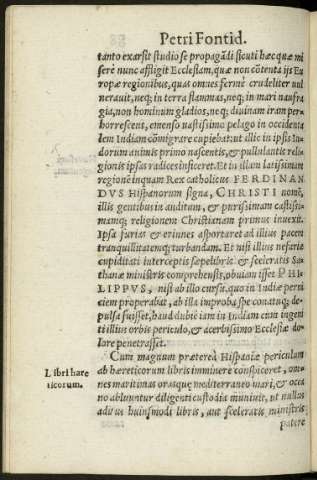 Petri Fontid.
tanto exarsit studio se propagādi sicuti hæc quæ mi
serè nunc affligit Ecclesiam, quæ non cōtenta ijs Eu
ropæ regionibus, quas omnes fermè crudeliter vul
nerauit, neq; in terra flammas, neq; in mari naufra
gia, non hominum gladios, neq; diuinam iram per
horrescens, emenso uastissimo pelago in occidenta
lem Indiam cōmigrare cupiebat: ut illic in ipsis In-
dorum animis primo nascentis, & pullulantis reli-
gionis ipsas radices inficeret. Et in illam latissimam
regionē in quam Rex catholicus FERDINAN
DVS Hispanorum signa, CHRISTI nomē,
illis gentibus in auditam, & purissimam castissi-
mamq; religionem Christianam primus inuexit.
Ipsa furias & erinnes asportaret ad illius pacem
tranquillitatemq; turbandam. Et nisi illius nefariæ
cupiditati interceptis sæpe libris & sceleratis Sa-
thanæ ministris comprehensis, obuiam isset PHI-
LIPPVS, nisi ab illo cursu, quo in Indiæ perni
ciem properabat, ab illa improba spe conatuq; de-
pulsa fuisset, haud dubiè iam in Indiam cum ingen
ti illius orbis periculo, & acerbissimo Ecclesiæ do-
lore penetrasset.
Cum magnum præterea Hispaniæ periculum
Libri hære
ticorum.
ab hæreticorum libris imminere conspiceret, om-
nes maritimas oras quæ mediterraneo mari, & ocea
no abluuntur diligenti custodia muniuit, ut nullus
aditus huiusmodi libris, aut sceleratis ministris
patere